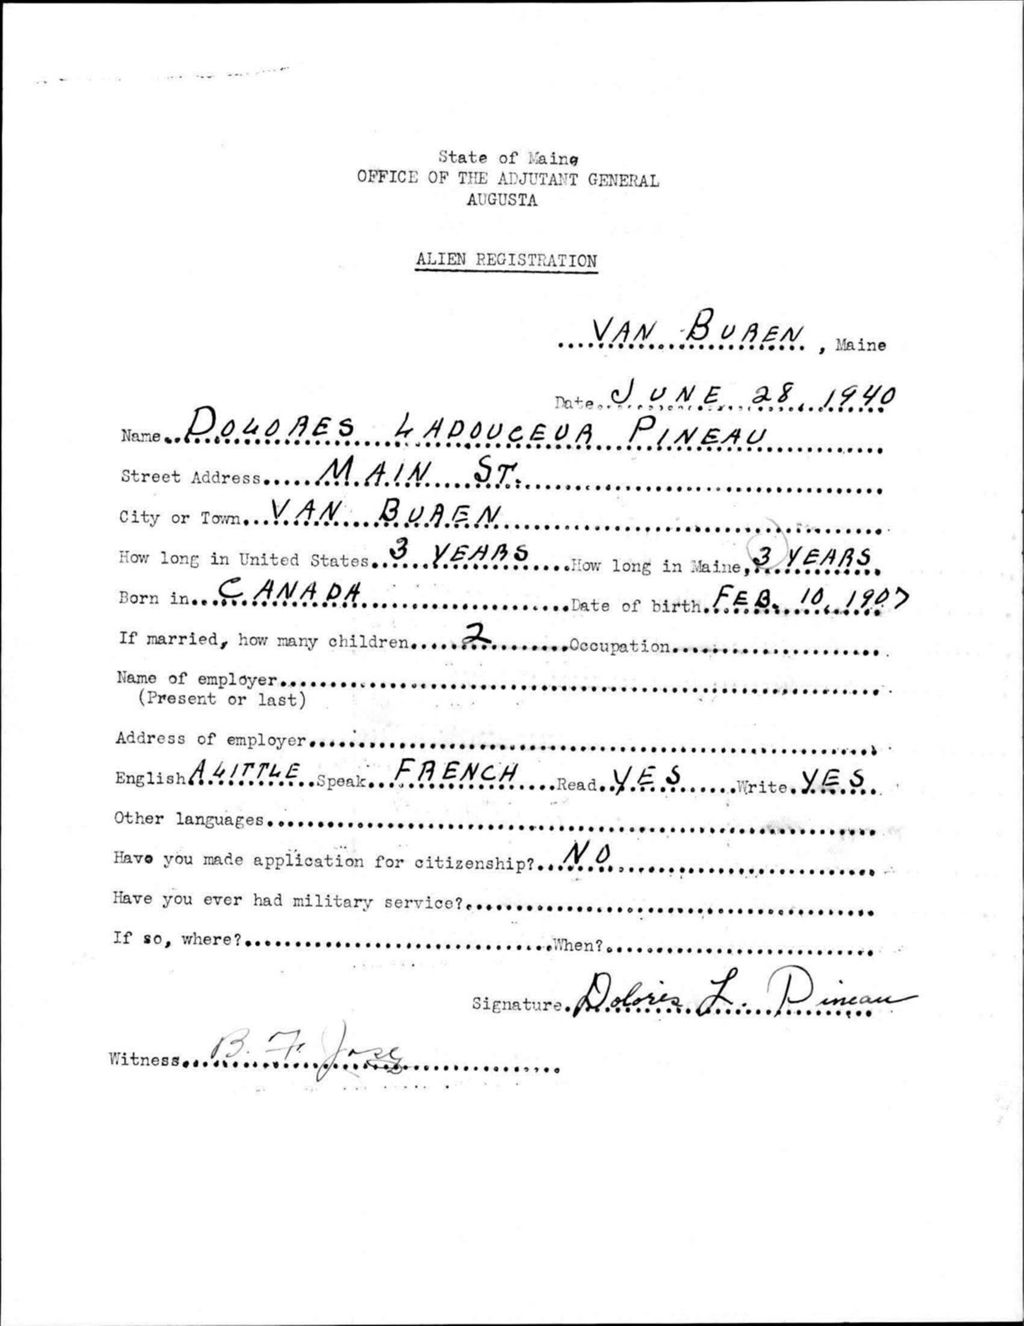 State of Maine
OFFICE OF THE ADJUTANT GENERAL
AUGUSTA
ALIEN REGISTRATION
VAN BUREN, Maine
Date JUNE 28, 1940
Name DOLORES LADOUCEUR PINEAU
Street Address MAIN ST.
City or Town VAN BUREN
How long in United States 3 YEARS How long in Maine 3 YEARS
Born in CANADA Date of birth FEB. 10, 1907
If married, how many children 2 Occupation
Name of employer
(Present or last)
Address of employer
English A LITTLE Speak FRENCH Read YES Write YES
Other languages
Have you made application for citizenship? NO
Have you ever had military service?
If so, where? When?
Signature Dolores L. Pineau
Witness B. F.